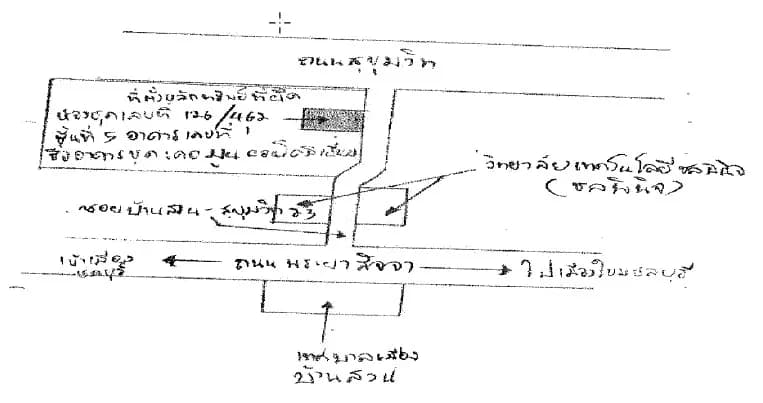 ถนนสุขุมวิท
ที่ตั้งหลักทรัพย์ที่ยึด
ห้องชุดเลขที่ 126/462
ชั้นที่ 5 อาคารเลขที่ 1
ชื่ออาคารชุด เดอะมูน คอนโดมิเนียม
วิทยาลัยเทคโนโลยีชลพินิจ
(ชลพินิจ)
ซอยบ้านสวน - สุขุมวิท 23
เข้าเมือง
ชลบุรี
ถนนพระยาสัจจา
ไปเลี่ยงเมืองชลบุรี
เทศบาลเมือง
บ้านสวน